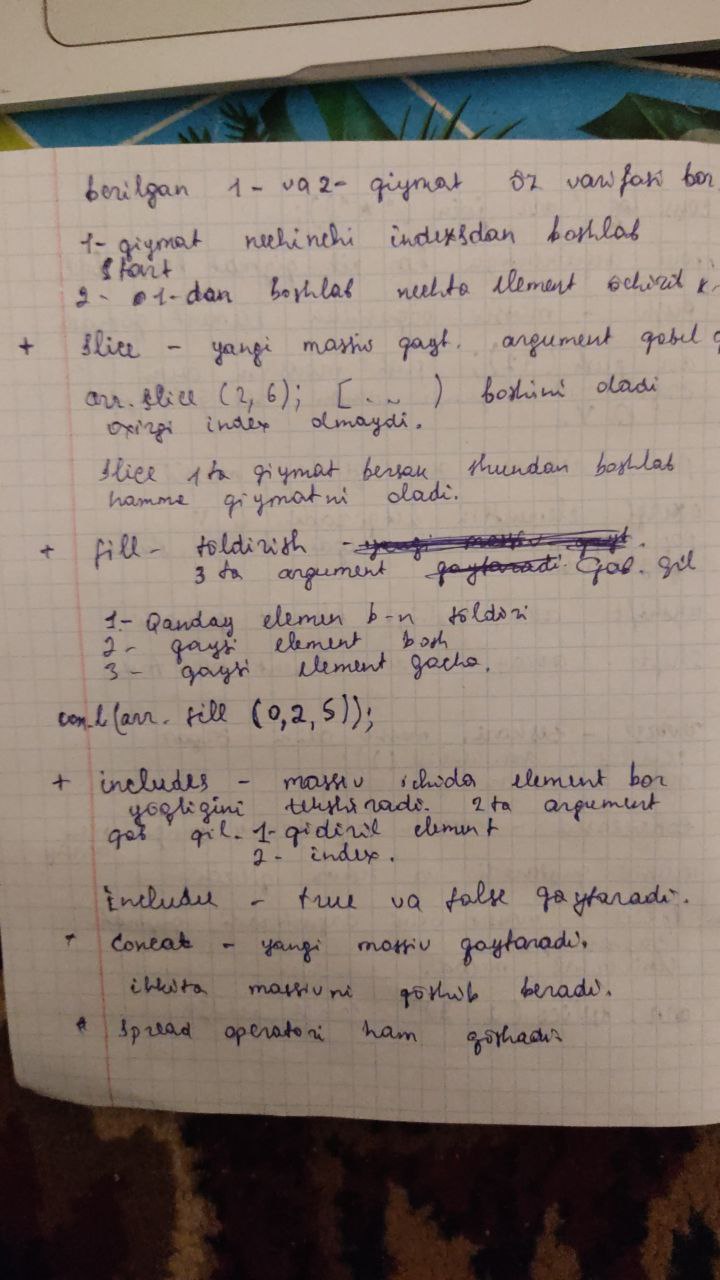 berilgan 1- va 2- qiymat öz vazifasi bor
1- qiymat nechinchi indexsdan boshlab
start
2- 1-dan boshlab nechta element öchiril
+ slice - yangi massiv qayt. argument qabul q
arr.slice (2, 6); [ ... ) boshini oladi
oxirgi index olmaydi.
slice 1 ta qiymat bersak shundan boshlab
hamma qiymatni oladi.
+ fill - töldirish - yangi massiv qayt.
3 ta argument qaytaradi. Qab. qil
1- Qanday elemen b-n töldiri
2- qaysi element bosh
3- qaysi element gacha.
con.l(arr. fill (0,2,5));
+ includes - massiv ichida element bor
yöqligini tekshiradi. 2 ta argument
qab qil. 1- qidiril element
2- index.
include - true va false qaytaradi.
+ Concat - yangi massiv qaytaradi.
ikkita massivni qöshib beradi.
* Spread operatori ham qöshadi